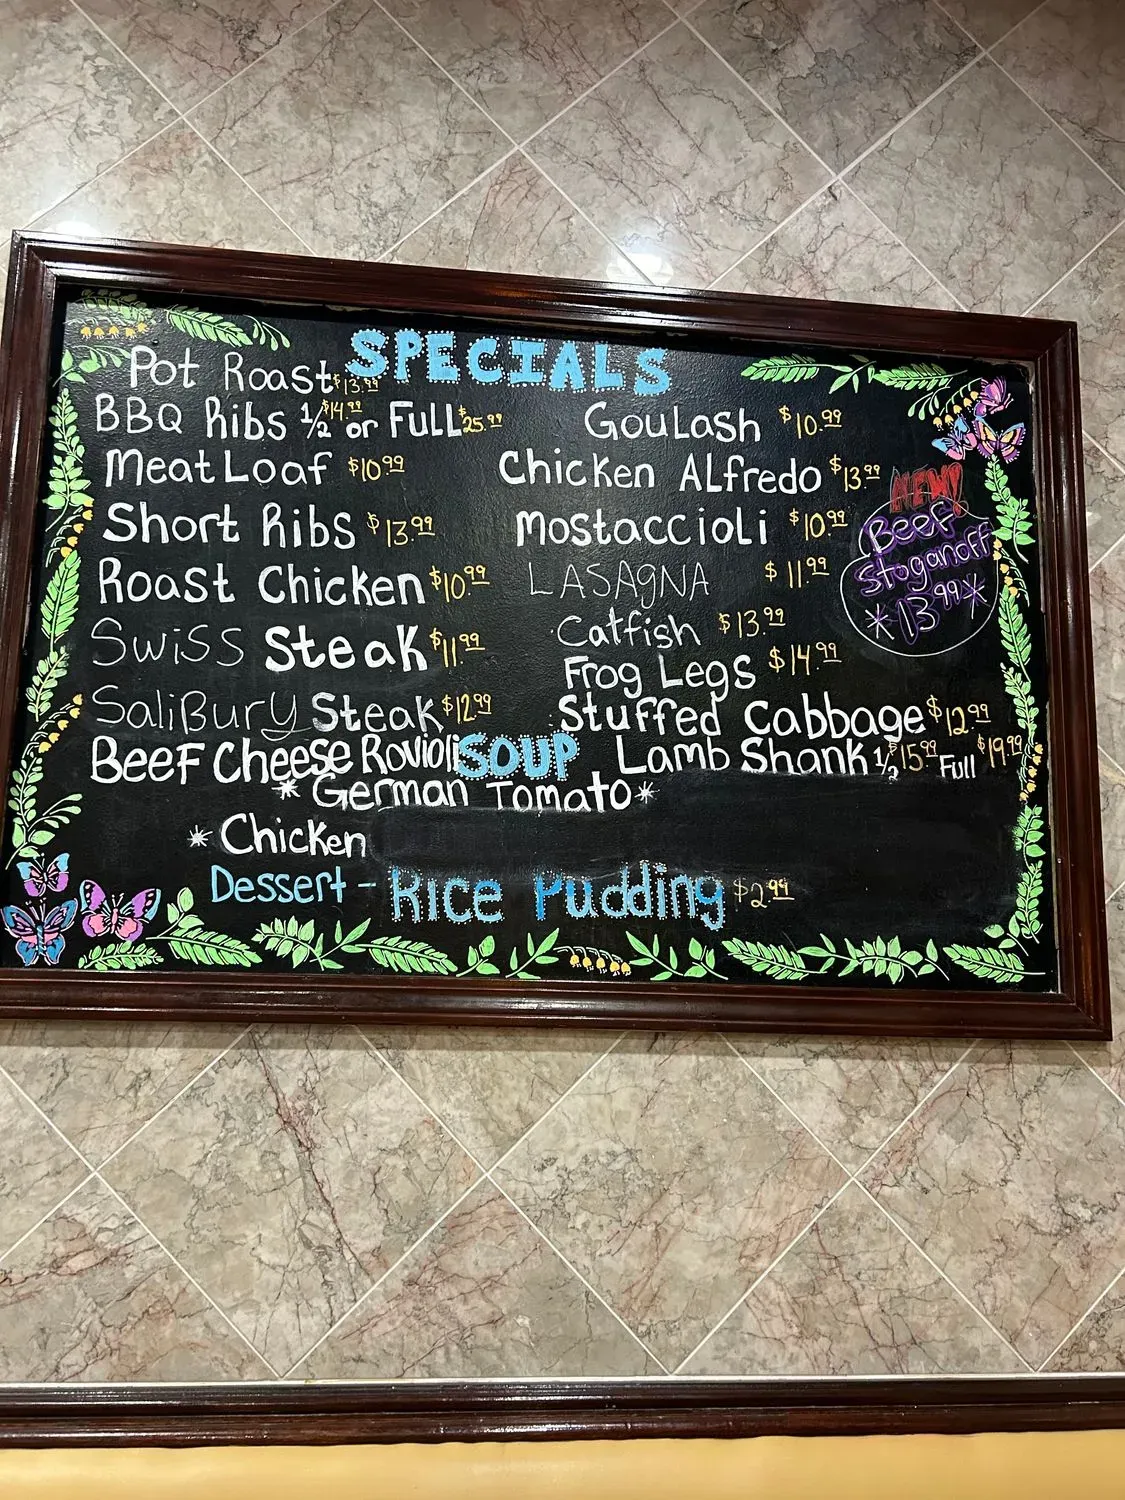 SPECIALS
Pot Roast $13.99
BBQ Ribs 1/2 $14.99 or Full $25.99
Meat Loaf $10.99
Short Ribs $13.99
Roast Chicken $10.99
Swiss Steak $11.99
SaliBury Steak $12.99
Beef Cheese Ravioli
Goulash $10.99
Chicken Alfredo $13.99
Mostaccioli $10.99
LASAgNA $11.99
Catfish $13.99
Frog Legs $14.99
Stuffed Cabbage $12.99
Lamb Shank 1/2 $15.99 Full $19.99
NEW!
Beef
Stoganoff
*13.99*
SOUP
*German Tomato*
*Chicken
Dessert - Rice Pudding $2.99